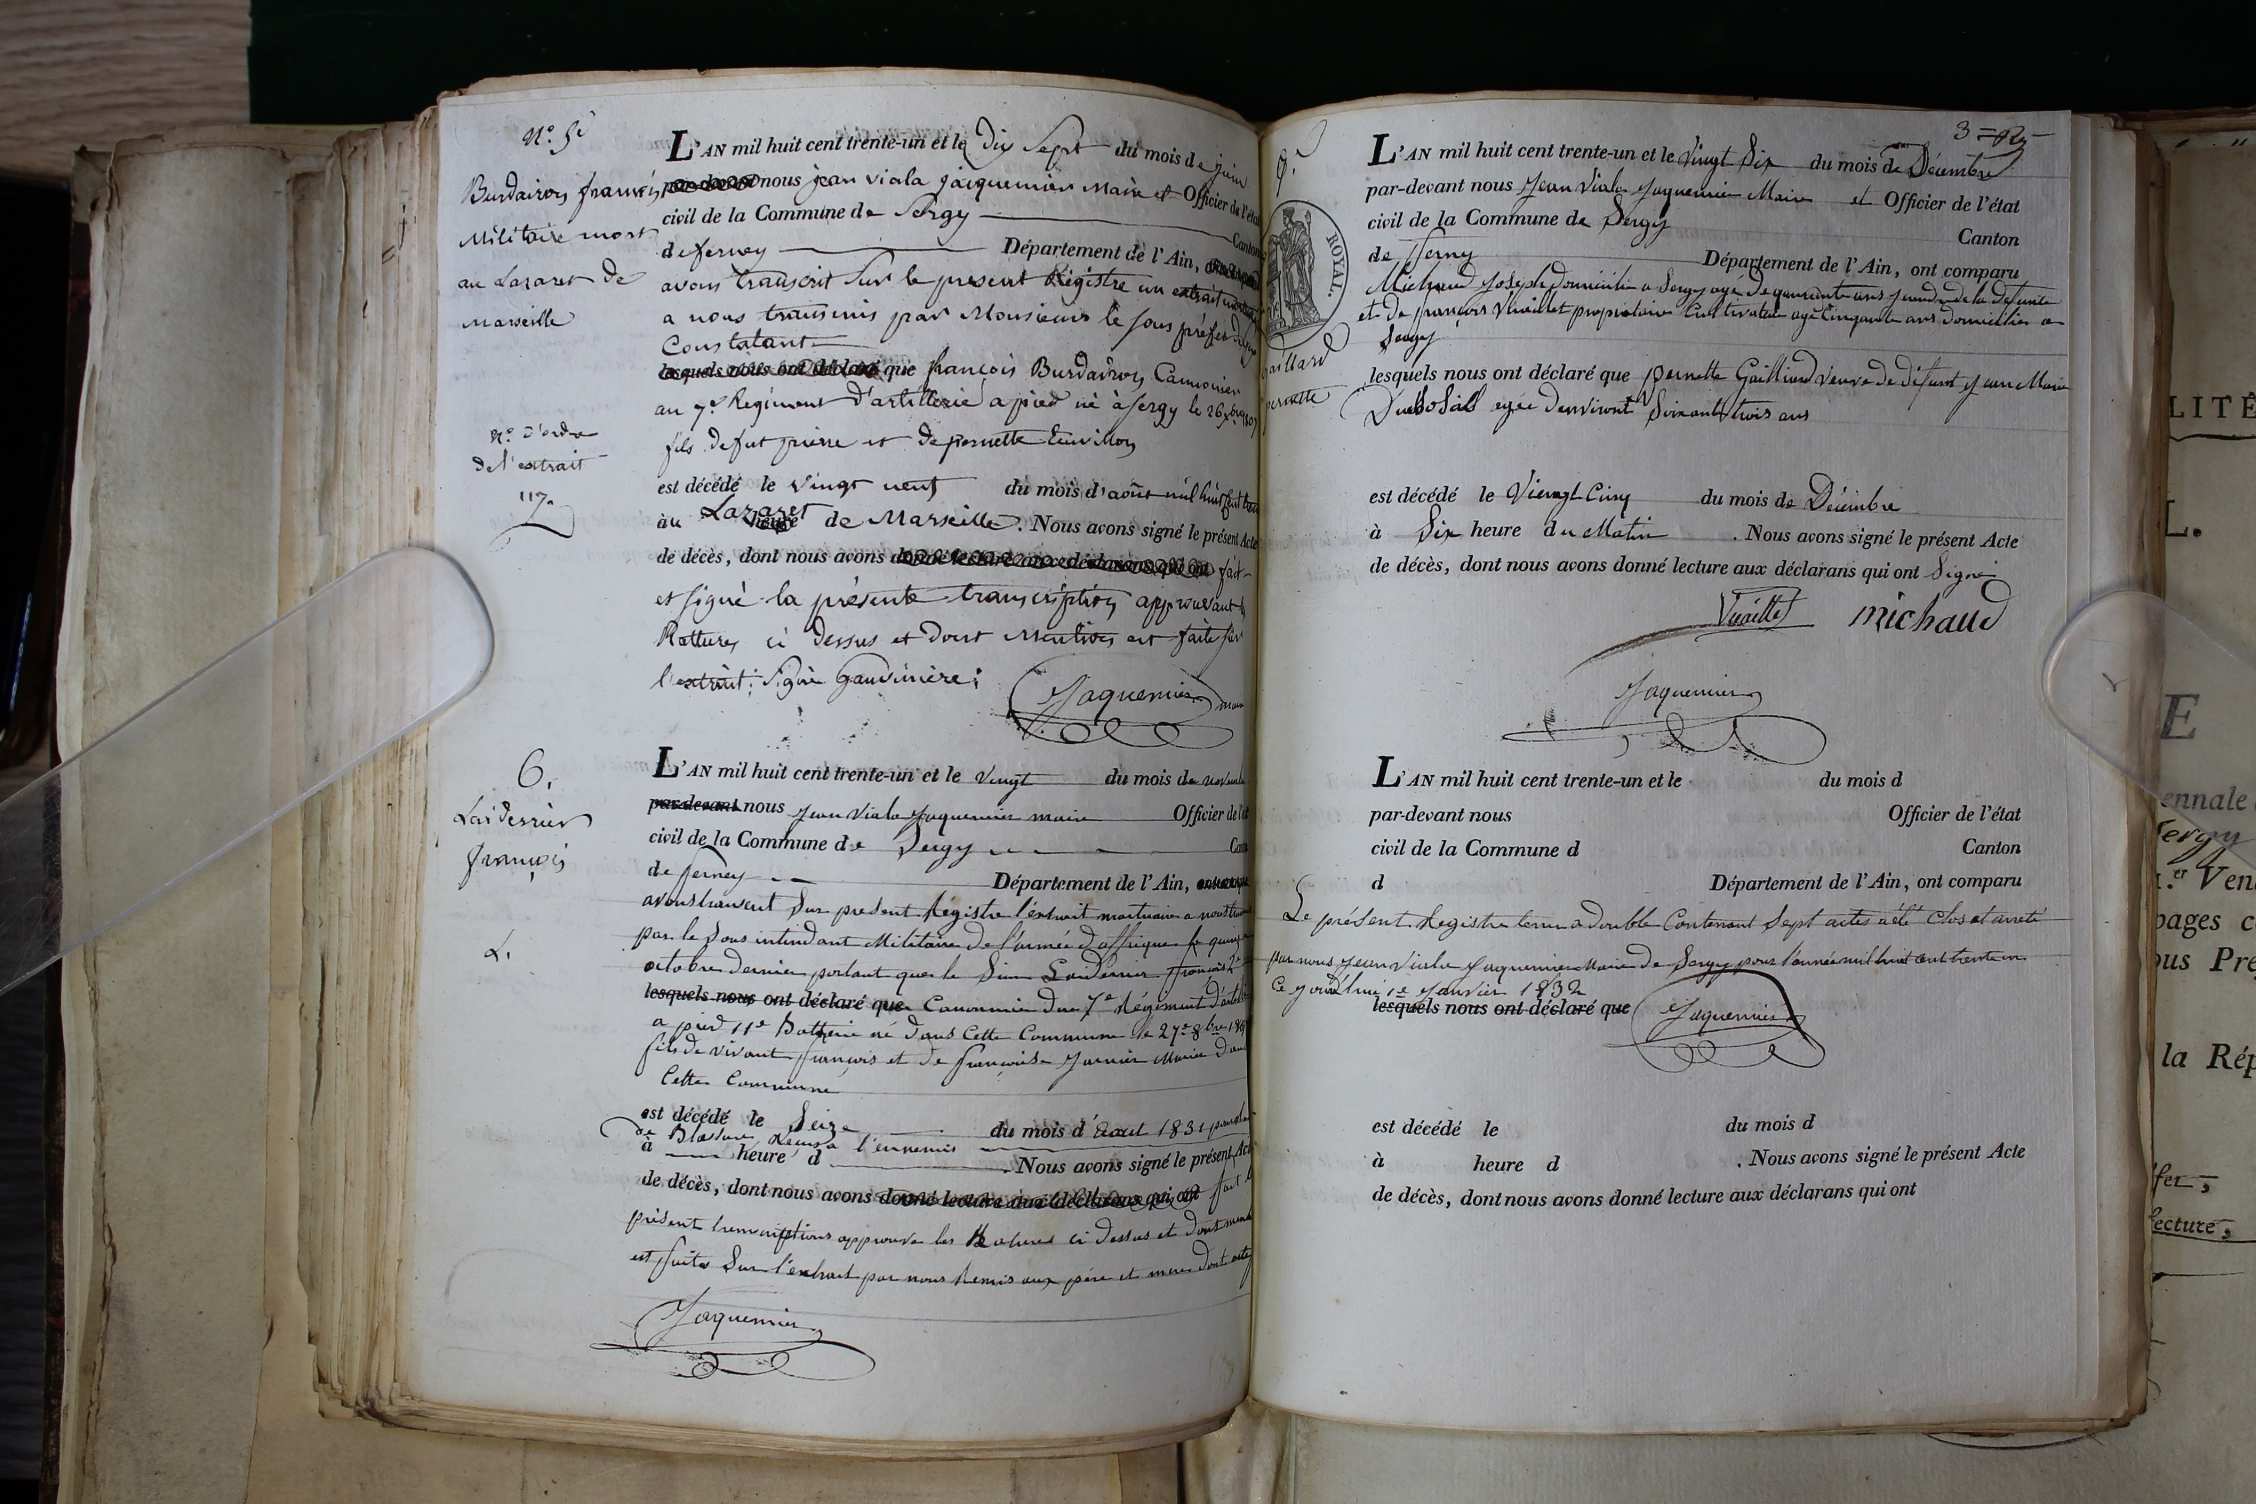 N.º 5
Burdairon françois
Militaire mort
au Lazaret de
Marseille
L'AN mil huit cent trente-un et le Dix Sept du mois de juin
par-devant nous jean viala jacquemier Maire et Officier de l'état
civil de la Commune de Sergy Canton
de ferney Département de l'Ain,
avons transcrit sur le present Régistre un extrait
a nous transmis par Monsieur le sous préfet
Constatant
lesquels nous ont déclaré que françois Burdairon Canonier
au 7.e Régiment d'artillerie a pied né à Sergy le 26
fils de fut pierre et de pernette
N.º d'ordre
de l'extrait
117
est décédé le vingt neuf du mois d'août mil huit cent
au Lazaret heure de Marseille. Nous avons signé le présent Acte
de décès, dont nous avons donné lecture aux déclarans qui ont fait
et signé la présente transcription approuvant les
Rattures ci dessus et dont mention est faite sur
l'extrait; signé
Jaquemier maire
6.
Laiderrier
françois
L.
L'AN mil huit cent trente-un et le vingt du mois de novembre
par-devant nous Jean Viala Jaquemier maire Officier de l'état
civil de la Commune de Sergy
de ferney Département de l'Ain,
avons transcrit Sur present Régistre l'extrait mortuaire a nous
par le Sous intendant Militaire de l'armée d'affrique le quinze
octobre dernier portant que le Sieur Laiderrier françois
lesquels nous ont déclaré que Canonnier du 7.e Régiment d'artillerie
a pied 11.e Batterie né dans Cette Commune le 27.e 8.bre
fils de vivant françois et de françoise Marié dans
Cette Commune
est décédé le Seize du mois d'Aout 1831
de Blessure Reçus a l'ennemis
à heure d . Nous avons signé le présent Acte
de décès, dont nous avons donné lecture aux déclarans qui ont fait
présent transcriptions approuve les Ratures ci dessus et dont
est faite Sur l'extrait par nous Remis aux père et mere dont acte
Jaquemier
7.
ROYAL.
Gaillard
pernette
L'AN mil huit cent trente-un et le Vingt Six du mois de Décembre
par-devant nous Jean Viala Jaquemier Maire et Officier de l'état
civil de la Commune de Sergy Canton
de ferney Département de l'Ain, ont comparu
Michaud Joseph domicilié a Sergy agé de quarante ans gendre de la défunte
et de françois Vuaillet propriétaire Cultivateur agé Cinquante ans domicilier a
Sergy
lesquels nous ont déclaré que pernette Gailliard veuve de défunt Jean Marie
agée denviront Soixante trois ans
est décédé le Viengt Cinq du mois de Décembre
à Six heure du Matin . Nous avons signé le présent Acte
de décès, dont nous avons donné lecture aux déclarans qui ont Signé
Vuaillet michaud
Jaquemier
L'AN mil huit cent trente-un et le du mois d
par-devant nous Officier de l'état
civil de la Commune d Canton
d Département de l'Ain, ont comparu
Le présent Registre tenu a double Contenant Sept actes a été Clos et arreté
par nous Jean Viala Jaquemier Maire de Sergy pour l'année mil huit cent trente un
Ce jourd'hui 1.e Janvier 1832
lesquels nous ont déclaré que
Jaquemier
est décédé le du mois d
à heure d . Nous avons signé le présent Acte
de décès, dont nous avons donné lecture aux déclarans qui ont